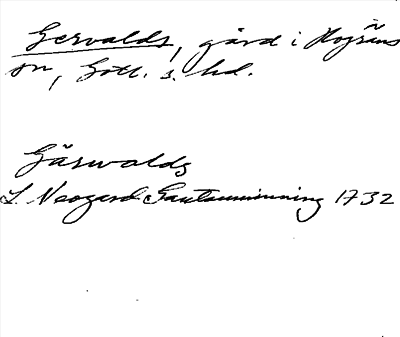 Gervalds, gård i Hogräns
sn, Gotl. s. hd.
Gärwalds
L. Neogard Gautauminning 1732